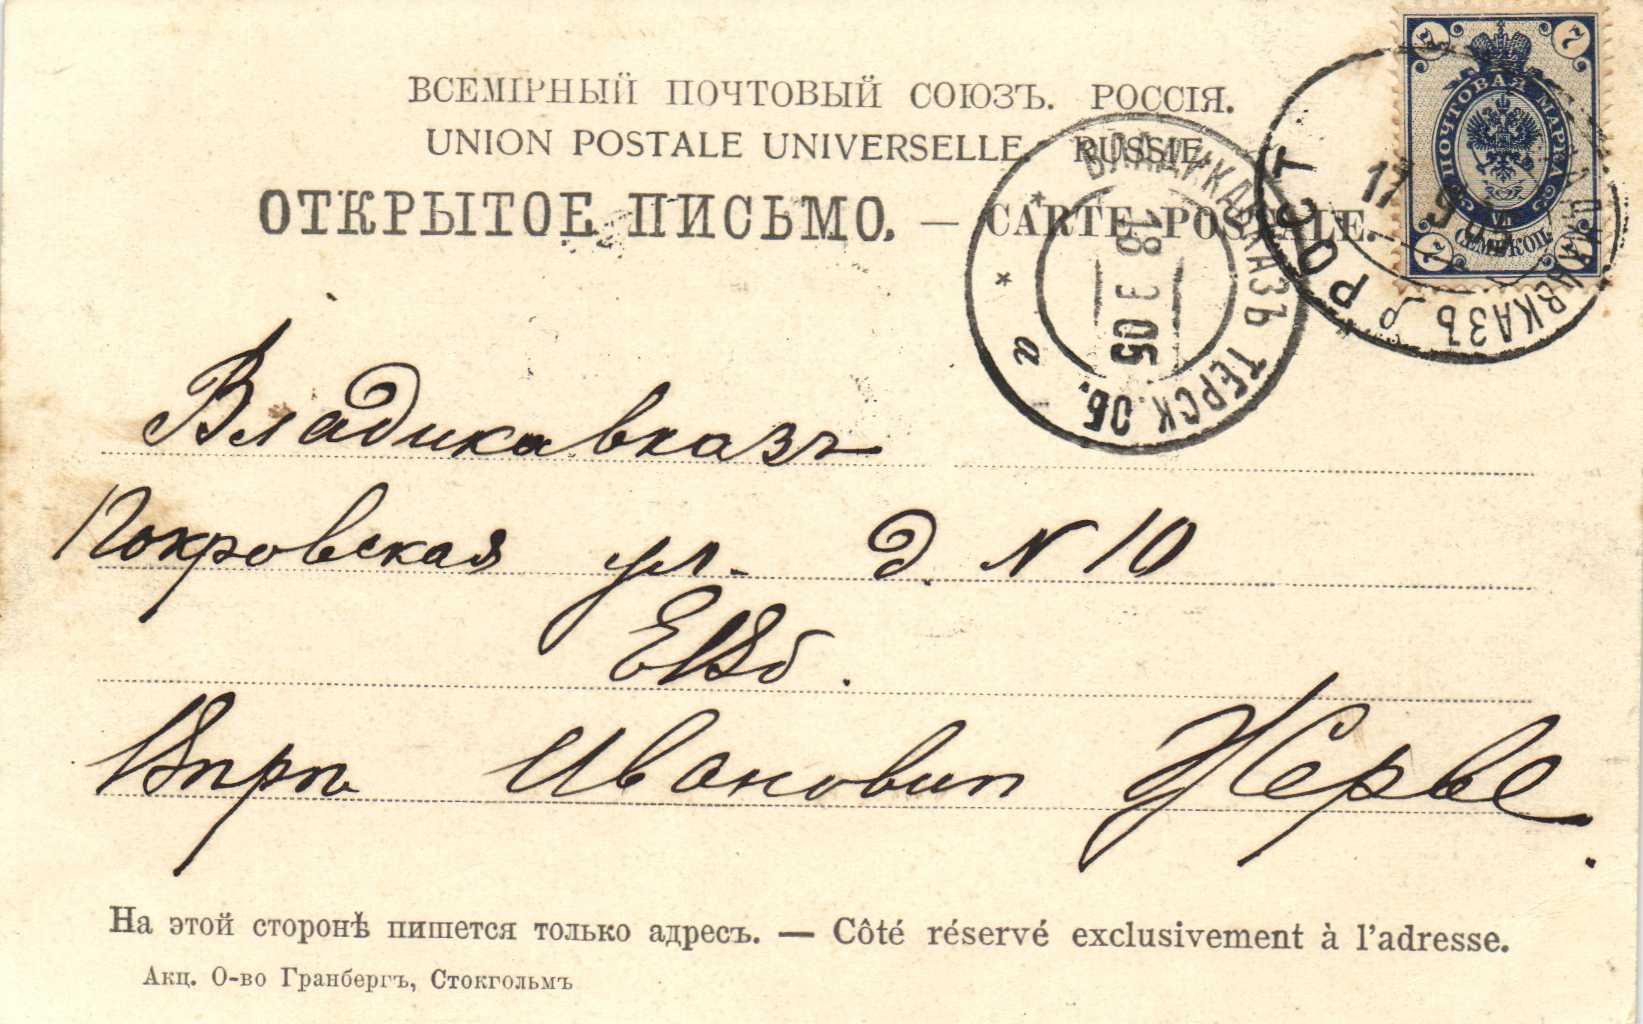 ВСЕМІРНЫЙ ПОЧТОВЫЙ СОЮЗЪ. РОССІЯ.
UNION POSTALE UNIVERSELLE. RUSSIE.
ОТКРЫТОЕ ПИСЬМО. — CARTE POSTALE.
7 7
ПОЧТОВАЯ МАРКА
СЕМЬ КОП.
7 7
РОСТ ВЛАДИКАВКАЗЪ
17 9
ВЛАДИКАВКАЗЪ ТЕРСК. ОБ.
18 9 05
а
Владикавказъ
Покровская ул. д. N 10
ЕВБ.
Иванович Жерве.
На этой сторонѣ пишется только адресъ. — Côté réservé exclusivement à l'adresse.
Акц. О-во Гранбергъ, Стокгольмъ